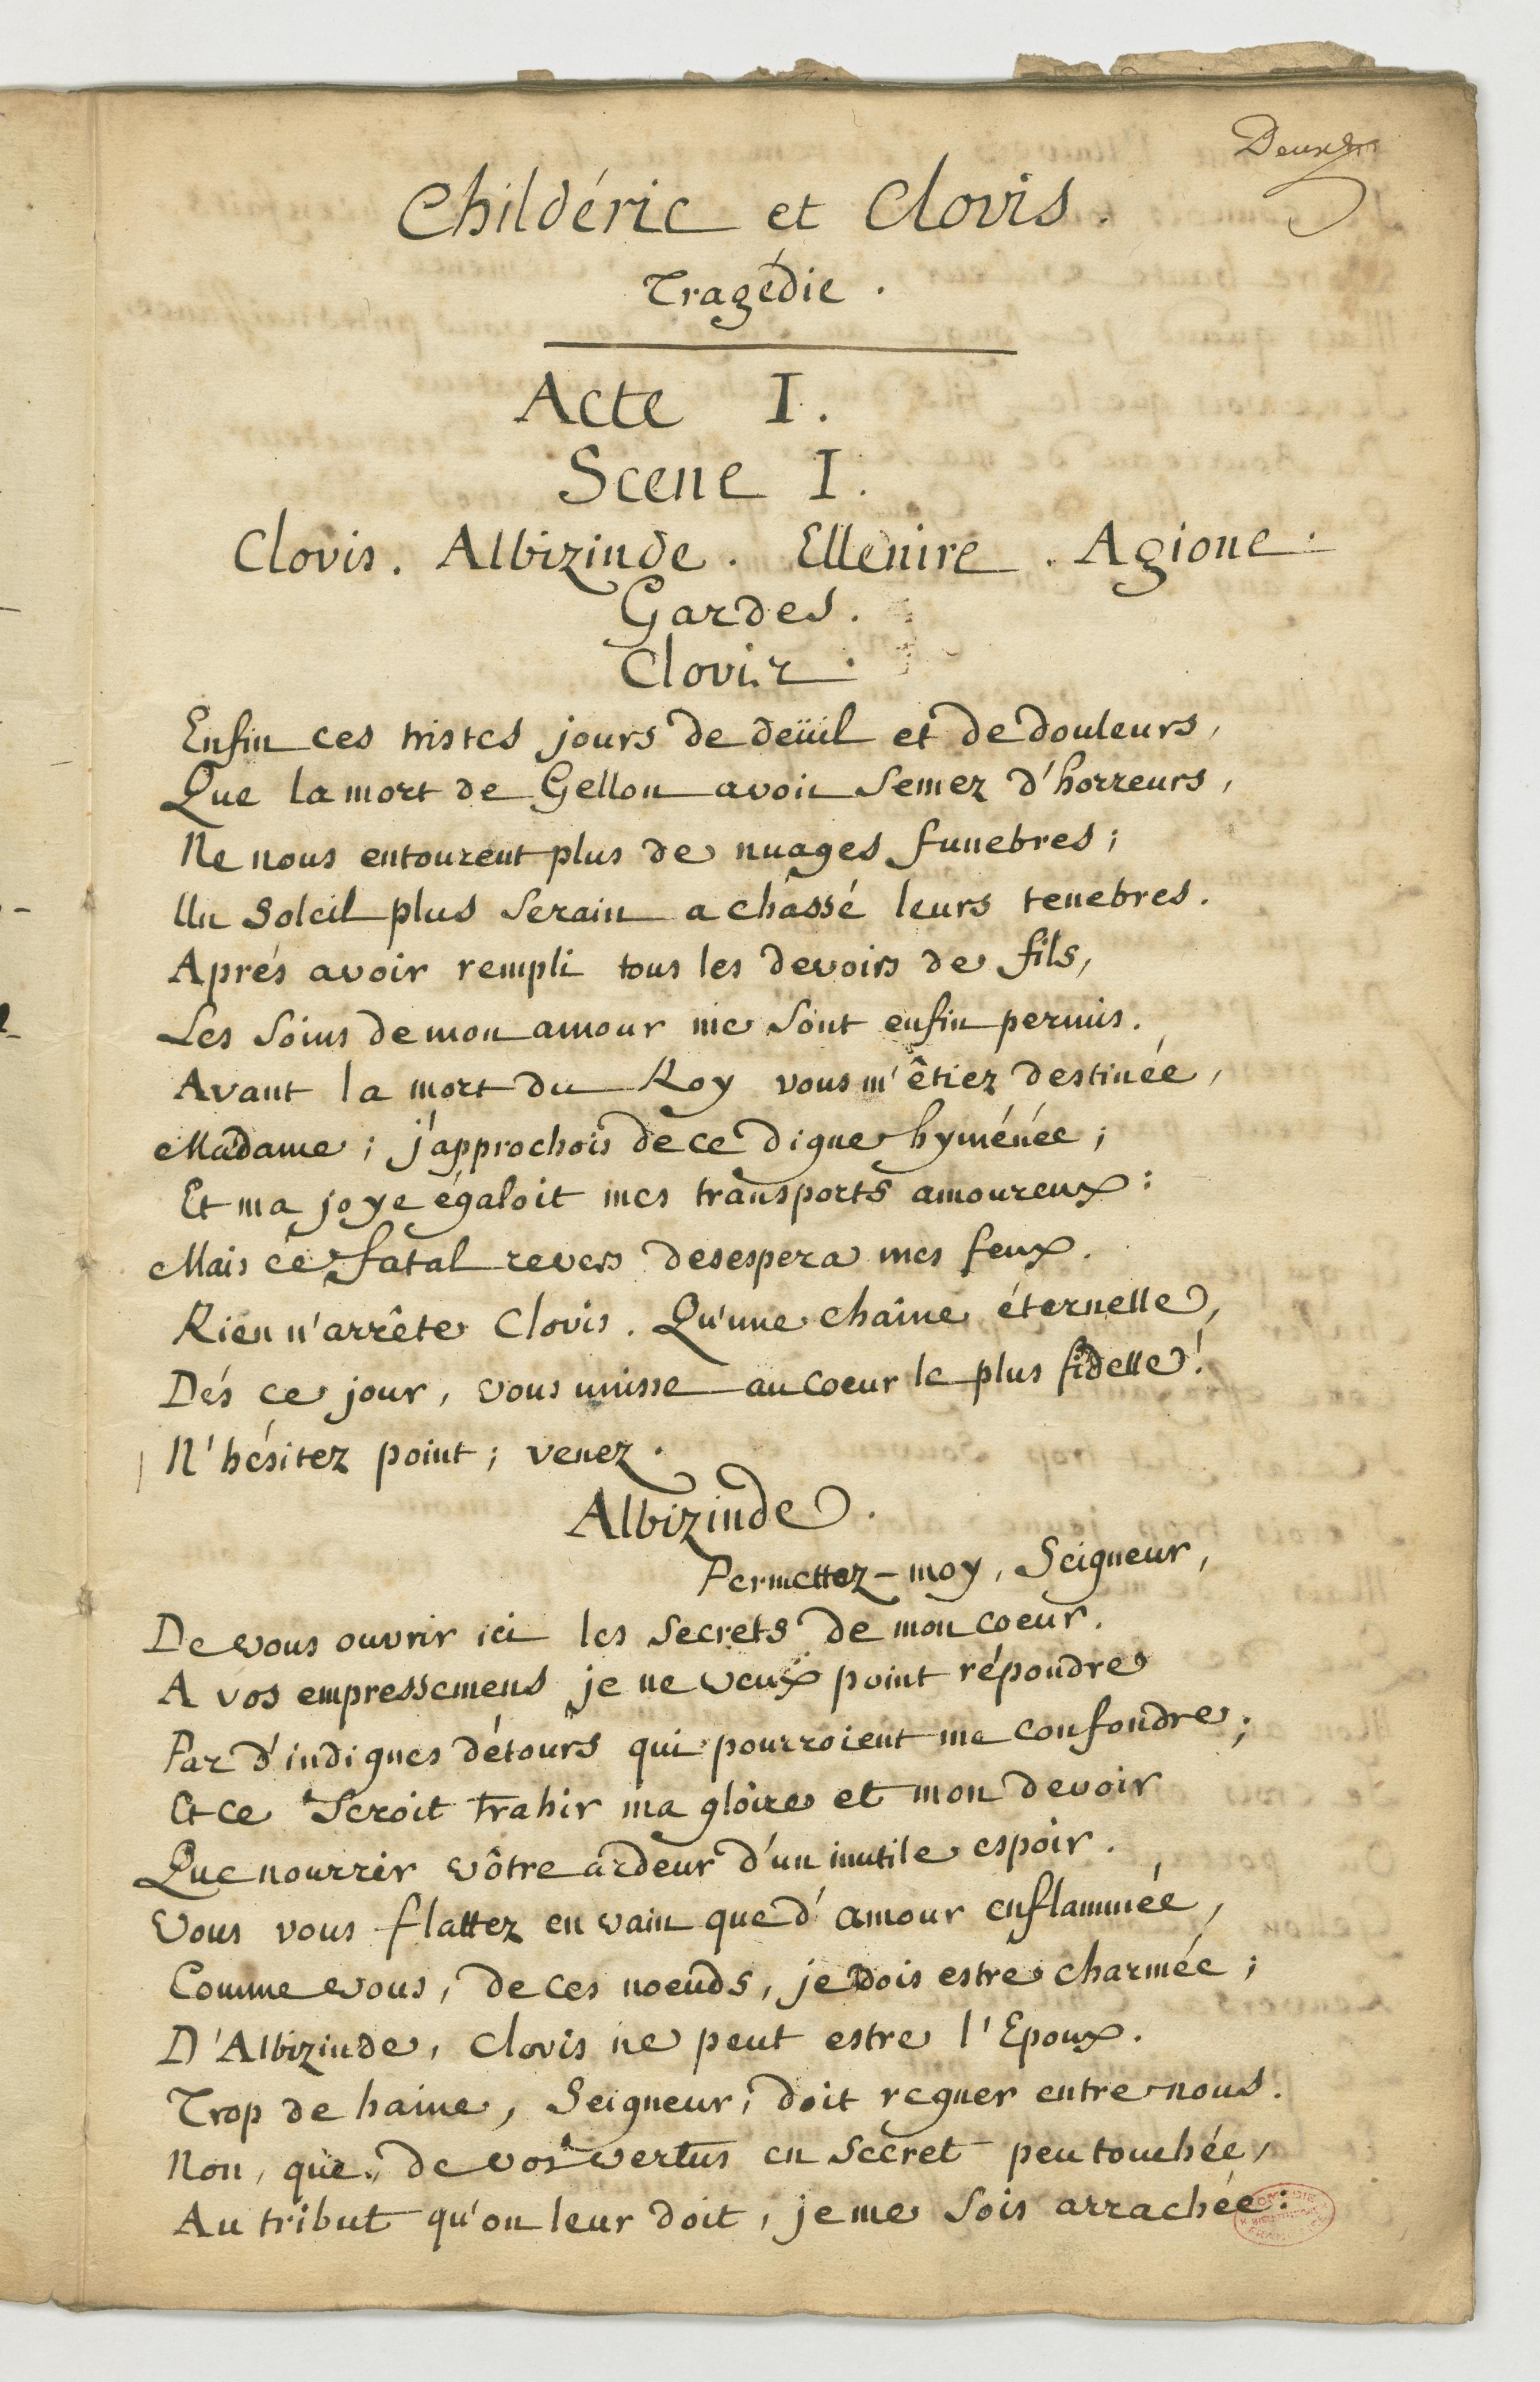 Childéric et Clovis.
Tragédie.
Acte I.
Scene I.
Clovis. Albizinde. Ellenire. Agione.
Gardes.
Clovis.
Enfin ces tristes jours de deüil et de douleurs,
Que la mort de Gellon avoit Semez d'horreurs,
Ne nous entourent plus de nuages funebres;
Un Soleil plus Serain a chassé leurs tenebres.
Aprés avoir rempli tous les devoirs de fils,
Les Soins de mon amour me Sont enfin permis.
Avant la mort du Roy vous m'êtiez destinée,
Madame; j'approchois de ce digne hyménée;
Et ma joye égaloit mes transports amoureux:
Mais ce fatal revers desespera mes feux.
Rien n'arrête Clovis. Qu'une chaîne éternelle,
Dés ce jour, vous unisse au coeur le plus fidelle!
N'hésitez point; venez.
Albizinde.
Permettez-moy, Seigneur,
De vous ouvrir ici les Secrets de mon coeur.
A vos empressemens je ne veux point répondre
Par d'indignes détours qui pourroient me confondre;
Et ce Seroit trahir ma gloire et mon devoir
Que nourrir vôtre ardeur d'un inutile espoir.
Vous vous flattez en vain que d'amour enflammée,
Comme vous, de ces noeuds, je dois estre charmée;
D'Albizinde, Clovis ne peut estre l'Epoux.
Trop de haine, Seigneur, doit regner entre nous.
Non, que, de vos vertus en Secret peu touchée,
Au tribut qu'on leur doit, je me Sois arrachée: